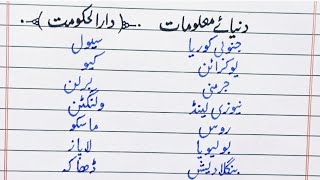 دنیائے معلومات .《دارالحکومت》.
جنوبی کوریا سیول
یوکرائن کیو
جرمنی برلن
نیوزی لینڈ ولنگٹن
روس ماسکو
بولیویا لاپاز
بنگلادیش ڈھاکہ